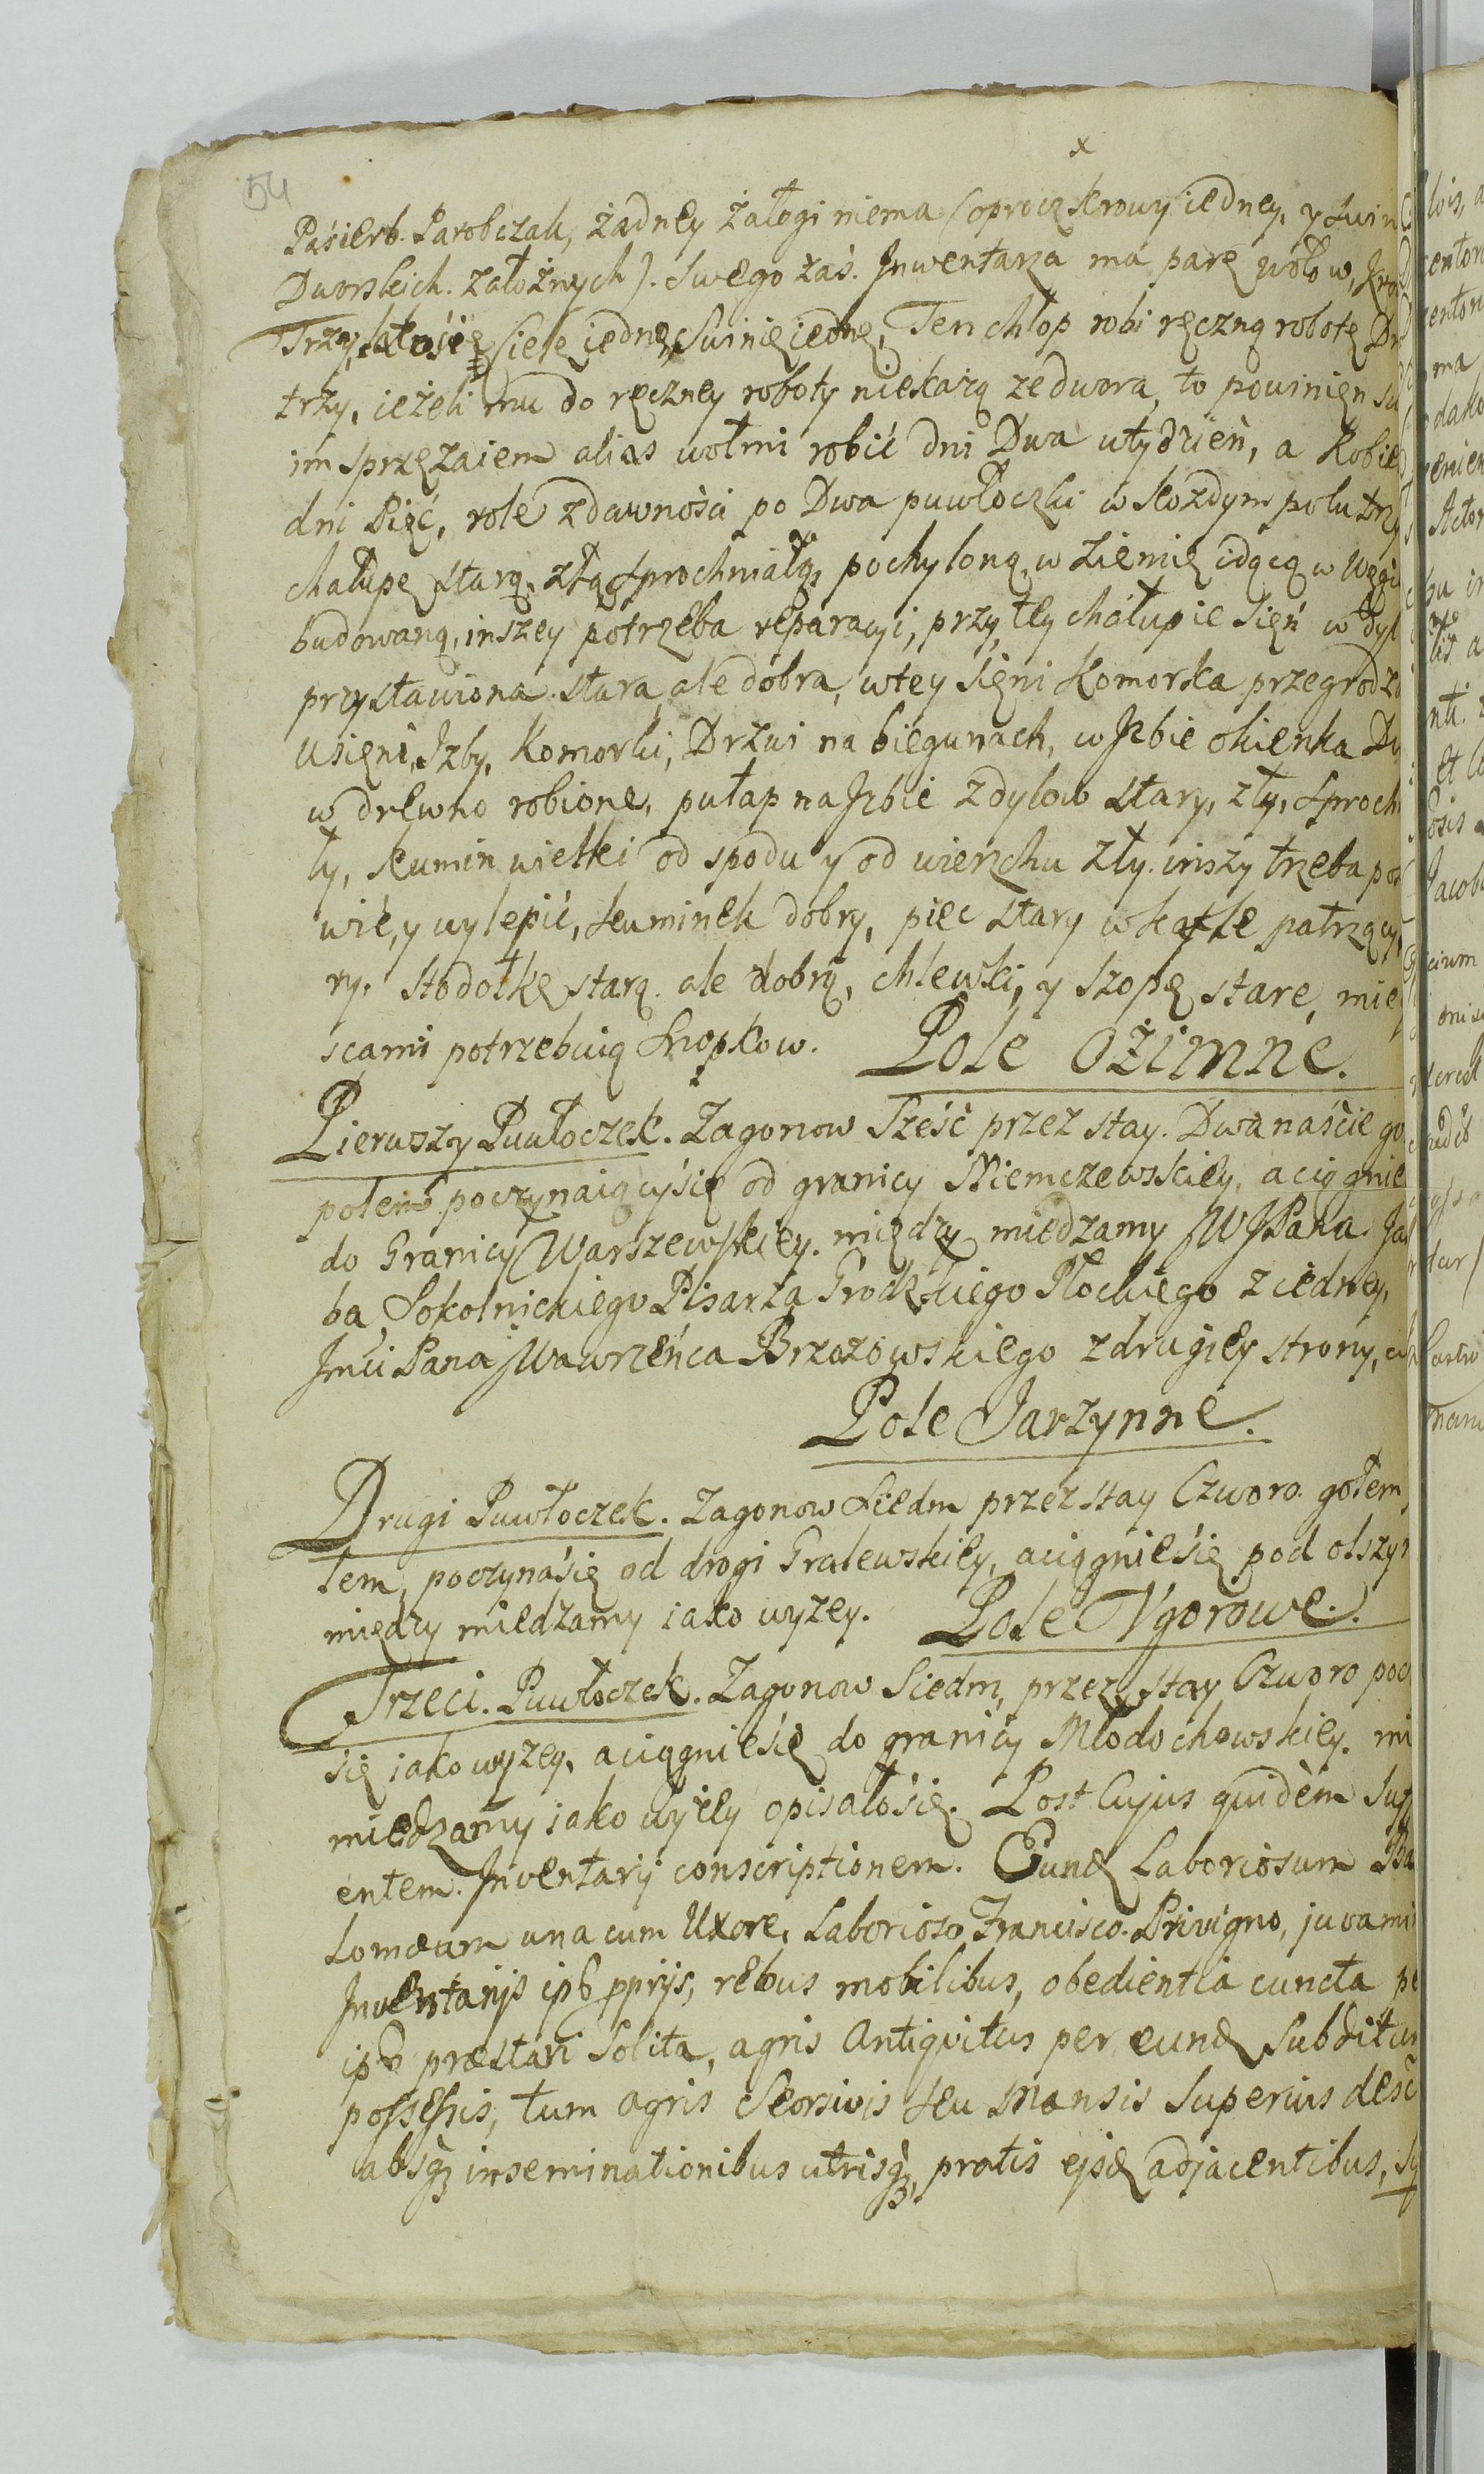 54
x
Pasierb. Parobczak, żadney żałogi niema (oprocz krowy iedney, y świn
Dworskich. założnych). Swego zaś. Inwentarza ma parę wołow, kro
Trzy, Ciele iednę, Swinię iednę, Ten chłop robi ręczną robotę D
trzy, ieżeli mu do ręczney roboty niekażą ze dwora, to powinien sw
im sprzężaiem alias wołmi robić dni Dwa w tydzień, a Kobie
dni Pięć, role zdawności po Dwa puwłoczki w Kozdym polu trzy
chałupę starą, złą sprochniałą, pochyloną, w ziemię idącą w węgi
budowaną, inszey potrzeba reparacyi, przy tey chałupie Sień w dyl
przystawiona stara ale dobra, w tey sięni Komorka przegrodzo
U sięni, Izby, Komorki, Drzwi na biegunach, w Izbie okienka Dw
w drewno robione, pułap na Izbie z dylow stary, zły, sproch
ły, kumin wielki od spodu y od wierzchu zły. inszy trzeba pos
wić, y wylepić, kuminek dobry, piec stary w kafle patrzący
ry. Stodołkę starą ale dobrą, chlewski, y szopę stare, miey
scami potrzebuią Snopkow. Pole Oźimne.
Pierwszy Puwłoczek. Zagonow Sześć przez stay. Dwanaście go
polem poczynaiącysię od granicy Niemczewskiey, aciągnie
do Granicy Warszewskiey. między miedzamy JWJPana Ja
ba Sokolnickiego Pisarza Grodzkiego Płockiego z iedney,
Jmći Pana Wawrzeńca Brzozowskiego z drugiey strony, a
Pole Jarzynne.
Drugi Puwłoczek. Zagonow Siedm przez stay Czworo. gołem
lem, poczynasię od drogi Gralewskiey, aciągniesię pod olszyn
między miedzamy iako wyzey. Pole Vgorowe.
Trzeci. Puwłoczek. Zagonow Siedm, przez stay Czworo poc
się iako wyzey, aciągniesię do granicy Młodochowskiey. mi
miedzamy iako wyżey opisałosię. Post Cujus quidem Su
entem. Inventarij conscriptionem. Eund Laboriosum Ba
lomæum una cum Uxore, Laborioso Francisco. Privigno, juvami
Inventarijs ipb pprijs, rebus mobilibus, obedientia cuncta pe
ipb præstari Solita, agris Antiquitus per eund Subditum
possessis, tum agris Seorsivis seu Mansis Superius desc
absq3 inseminationibus utrisq3, pratis ejsd adjacentibus, Sy